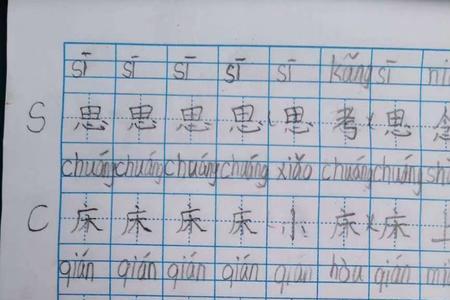 sī sī sī sī sī sī
S 思 思 思 思 思 考 思 念
chuáng chuáng chuáng chuáng xiǎo chuáng chuáng
C 床 床 床 床 小 床 床 上
qián qián qián qián qián hòu qián